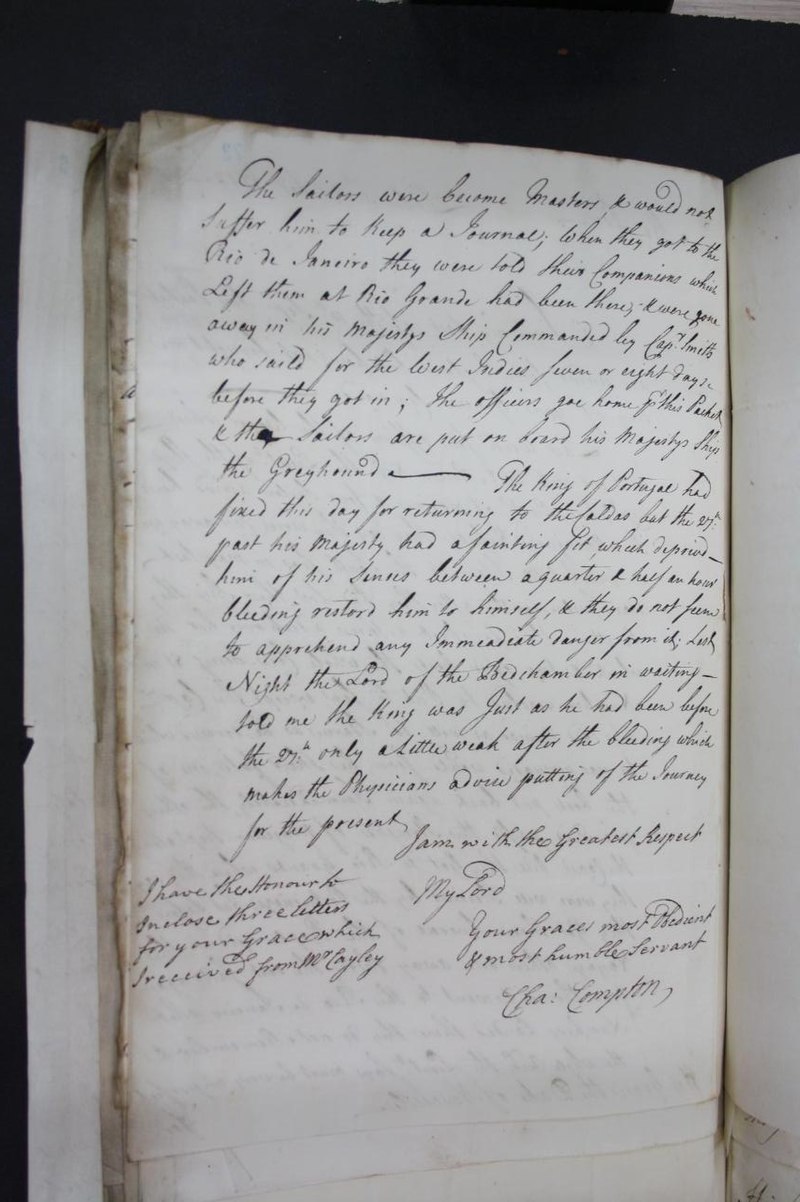 The Sailors were become Masters, & would not
suffer him to Keep a Journal; when they got to the
Rio de Janeiro they were told their Companions which
Left them at Rio Grande had been there, & were gone
away in his Majestys Ship Commanded by Capt. Smith
who saild for the West Indies seven or eight days
before they got in; The officers goe home pr this Packet
& the Sailors are put on board his Majestys Ship
the Greyhound — The King of Portugal had
fixed this day for returning to the Caldas but the 27th
past his Majesty had a fainting fit, which deprived
him of his Senses between a quarter & half an hour
bleeding restord him to himself, & they do not seem
to apprehend any Immeadiate danger from it; Last
Night the Lord of the Bedchamber in waiting —
told me the King was Just as he had been before
the 27th only a Little weak after the bleeding which
makes the Physicians advise putting of the Journey
for the present,
I am with the Greatest Respect
My Lord
Your Graces most Obedient
& most humble Servant
Cha: Compton,
I have the Honour to
Inclose three letters
for your Grace which
I received from Mr Cayley